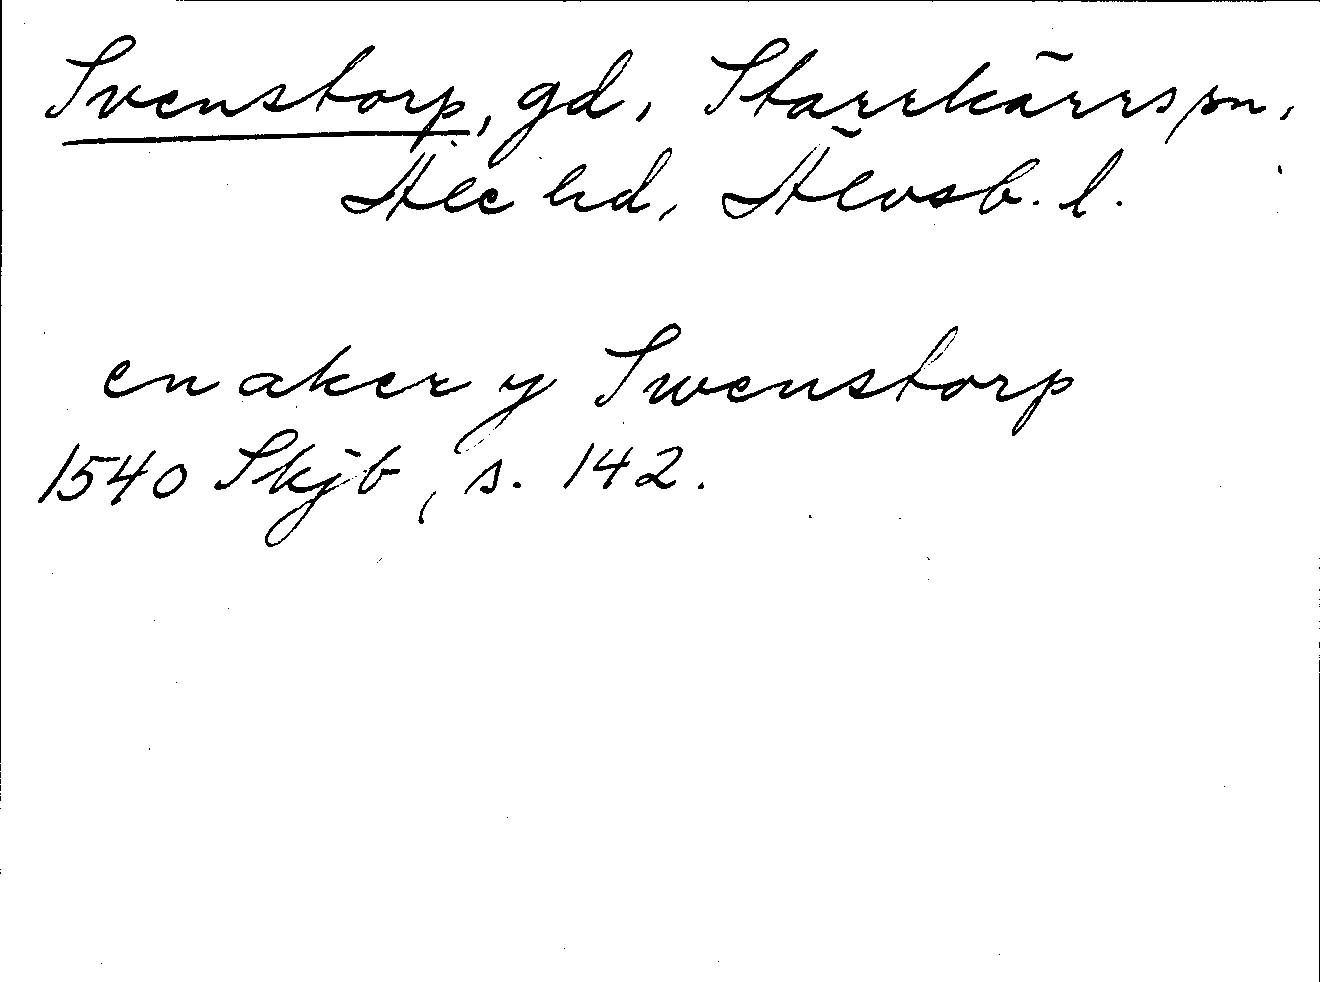 Svenstorp, gd, Starrkärrs sn,
Ale hd, Älvsb. l.
en aker y Swenstorp
1540 Skjb, s. 142.